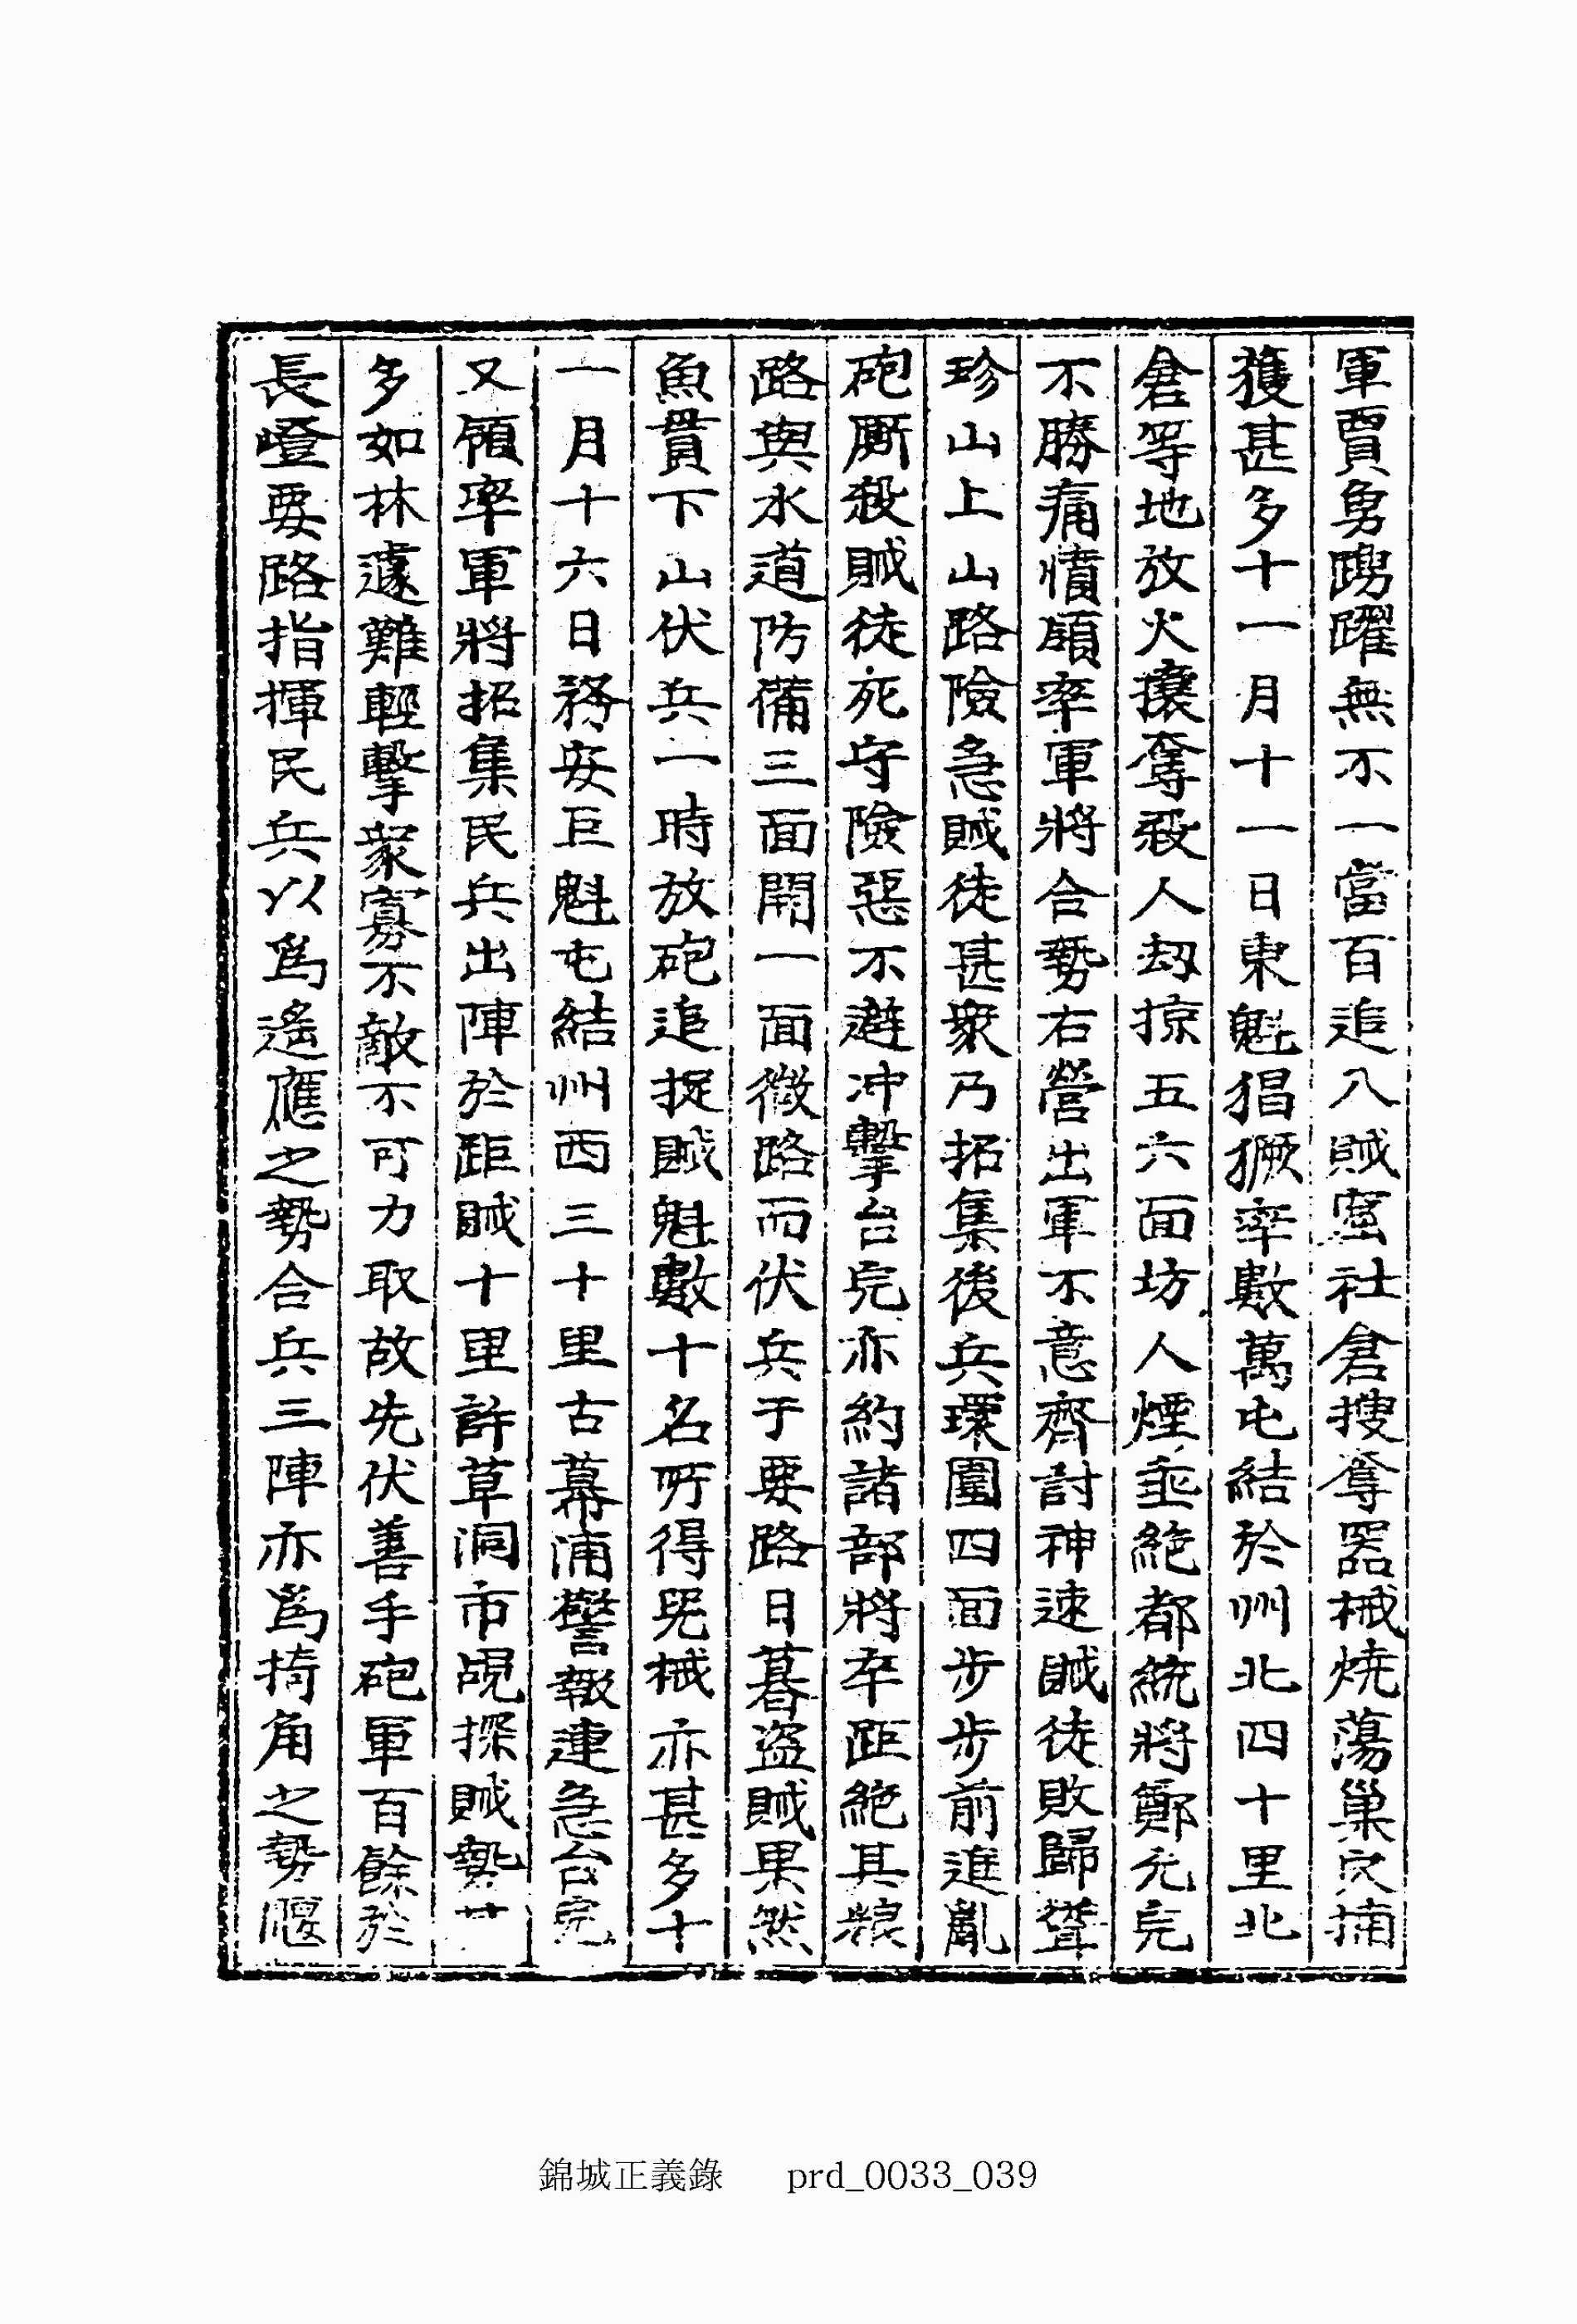 軍賈勇踴躍無不一當百追入賊窟社倉搜奪器械燒蕩巢穴捕
獲甚多十一月十一日東魁猖獗率數萬屯結於州北四十里北
倉等地放火攘奪殺人刼掠五六面坊人煙垂絶都統將鄭允完
不勝痛憤領率軍將合勢右營出軍不意齊討神速賊徒敗歸聳
珍山上山路險急賊徒甚衆乃招集後兵環圍四面步步前進亂
砲厮殺賊徒死守險惡不避冲擊台完亦約諸部將卒距絶其粮
路與水道防備三面開一面微路而伏兵于要路日暮盜賊果然
魚貫下山伏兵一時放砲追捉賊魁數十名所得器械亦甚多十
一月十六日務安巨魁屯結州西三十里古幕浦警報連急台完
又領率軍將招集民兵出陣於距賊十里許草洞市覘探賊勢廿
多如林遽難輕擊衆寡不敵不可力取故先伏善手砲軍百餘於
長嶝要路指揮民兵以爲遙應之勢合兵三陣亦爲掎角之勢偃
錦城正義錄 prd_0033_039